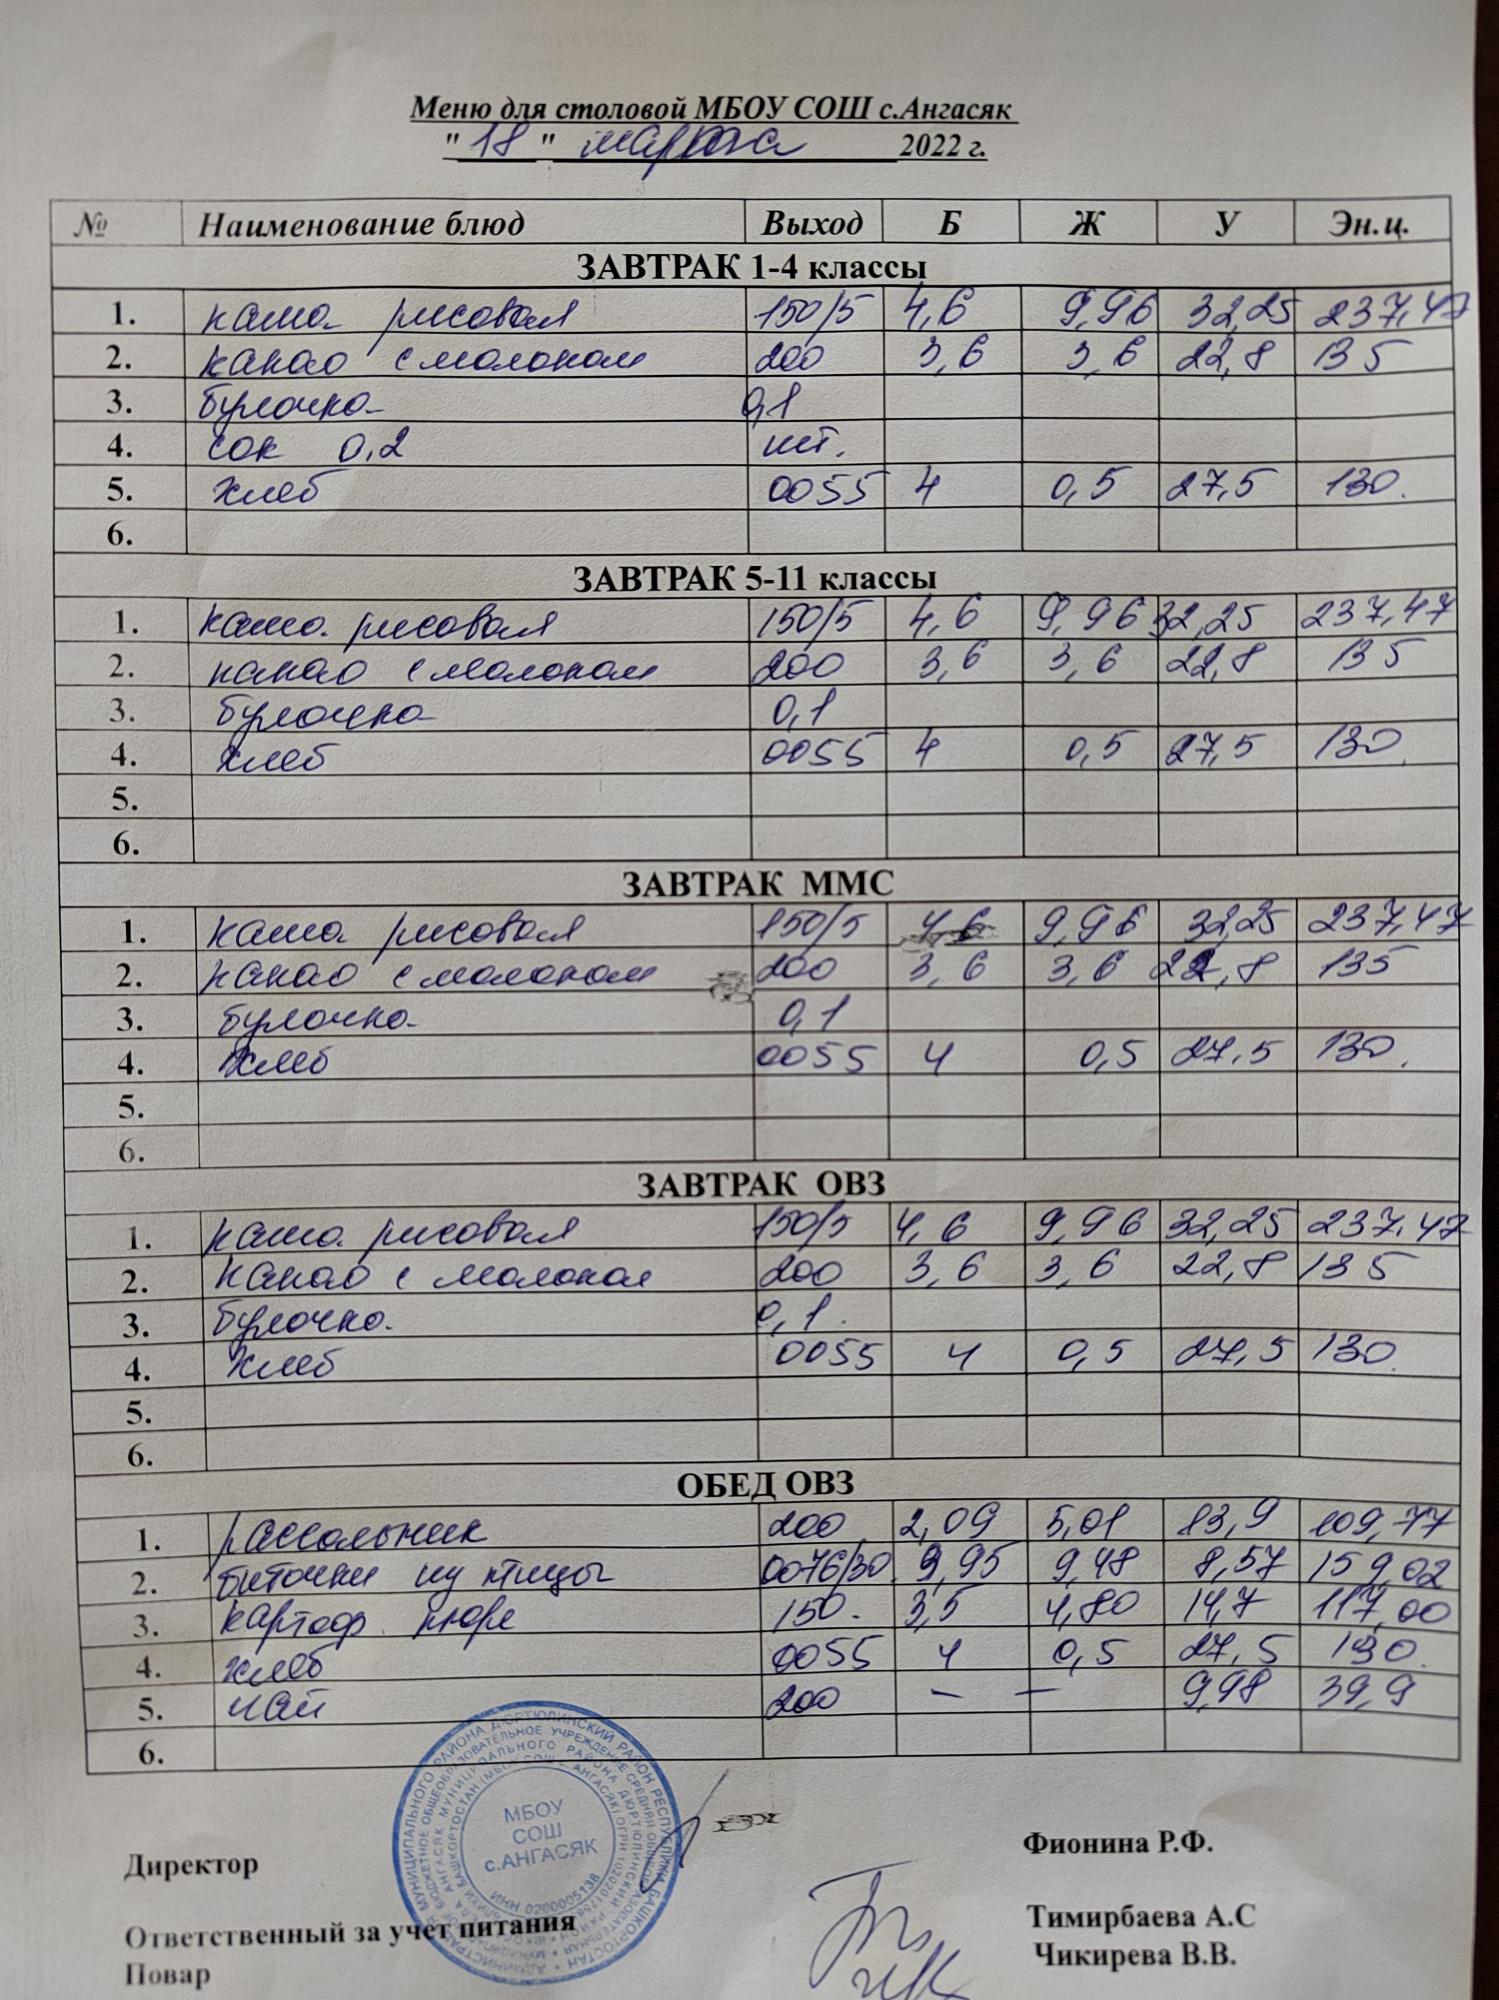 Меню для столовой МБОУ СОШ с.Ангасяк
"18" марта 2022 г.
№ Наименование блюд Выход Б Ж У Эн.ц.
ЗАВТРАК 1-4 классы
1. каша рисовая 150/5 4,6 9,96 32,25 237,47
2. какао с молоком 200 3,6 3,6 22,8 135
3. булочка 0,1
4. сок 0,2 шт.
5. хлеб 0055 4 0,5 27,5 130.
6.
ЗАВТРАК 5-11 классы
1. каша рисовая 150/5 4,6 9,96 32,25 237,47
2. какао с молоком 200 3,6 3,6 22,8 135
3. булочка 0,1
4. хлеб 0055 4 0,5 27,5 130.
5.
6.
ЗАВТРАК ММС
1. каша рисовая 150/5 4,6 9,96 32,25 237,47
2. какао с молоком 200 3,6 3,6 22,8 135
3. булочка 0,1
4. хлеб 0055 4 0,5 27,5 130.
5.
6.
ЗАВТРАК ОВЗ
1. каша рисовая 150/5 4,6 9,96 32,25 237,47
2. какао с молоком 200 3,6 3,6 22,8 135
3. булочка 0,1.
4. хлеб 0055 4 0,5 27,5 130.
5.
6.
ОБЕД ОВЗ
1. рассольник 200 2,09 5,01 13,9 109,77
2. биточки из птицы 0076/30 9,95 9,48 8,57 159,02
3. картоф. пюре 150. 3,5 4,80 14,7 117,00
4. хлеб 0055 4 0,5 27,5 130.
5. чай 200 – – 9,98 39,9
6.
МБОУ
СОШ
с.АНГАСЯК
ИНН 0260005138
Директор Фионина Р.Ф.
Ответственный за учет питания Тимирбаева А.С
Повар Чикирева В.В.